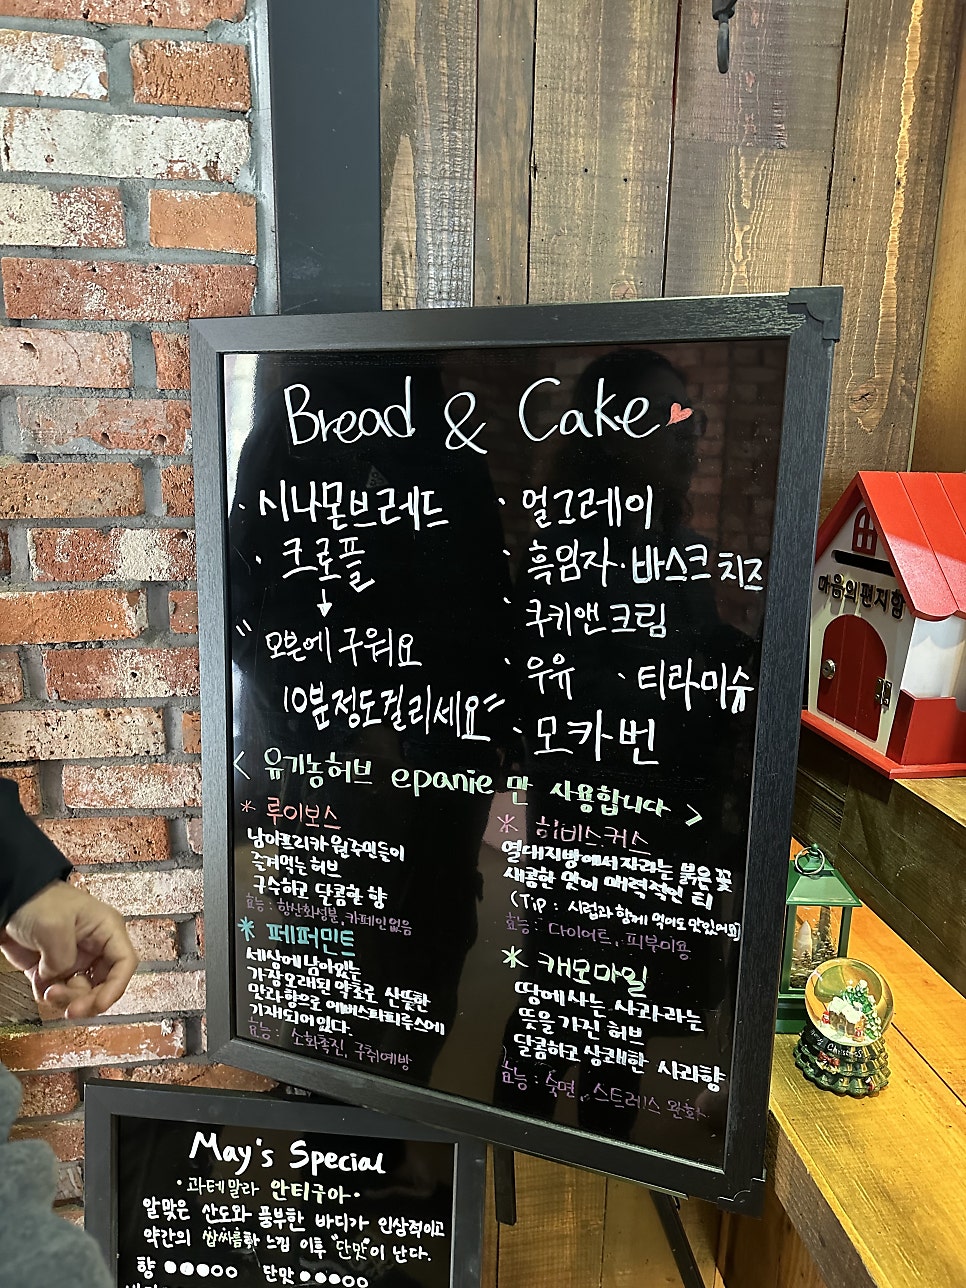 Bread & Cake
· 시나몬브레드
· 크로플
↓
"오븐에 구워요
10분정도걸리세요"
· 얼그레이
· 흑임자 · 바스크치즈
· 쿠키앤크림
· 우유 · 티라미슈
· 모카번
< 유기농허브 epanie 만 사용합니다 >
* 루이보스
남아프리카 원주민들이
즐겨먹는 허브
구수하고 달콤한 향
효능 : 항산화성분, 카페인없음
* 페퍼민트
세상에 남아있는
가장 오래된 약초로 산뜻한
맛과 향으로 에버스파피루스에
기재되어있다.
효능 : 소화촉진, 구취예방
* 히비스커스
열대지방에서 자라는 붉은 꽃
새콤한 맛이 매력적인 티
(Tip : 시럽과 함께 먹어도 맛있어요)
효능 : 다이어트, 피부미용
* 캐모마일
땅에서 나는 사과라는
뜻을 가진 허브
달콤하고 상쾌한 사과향
효능 : 숙면, 스트레스 완화
마음의편지함
May's Special
· 과테말라 안티구아 ·
알맞은 산도와 풍부한 바디가 인상적이고
약간의 쌉싸름한 느낌 이후 "단맛"이 난다.
향 ●●●○○ 단맛 ●●●○○